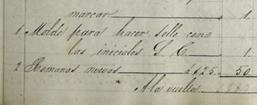 marcar 1.
1 Molde para hacer sello con
las iniciales S. C. 1.
2 Romanas nuevas á 25. 50.
A la vuelta